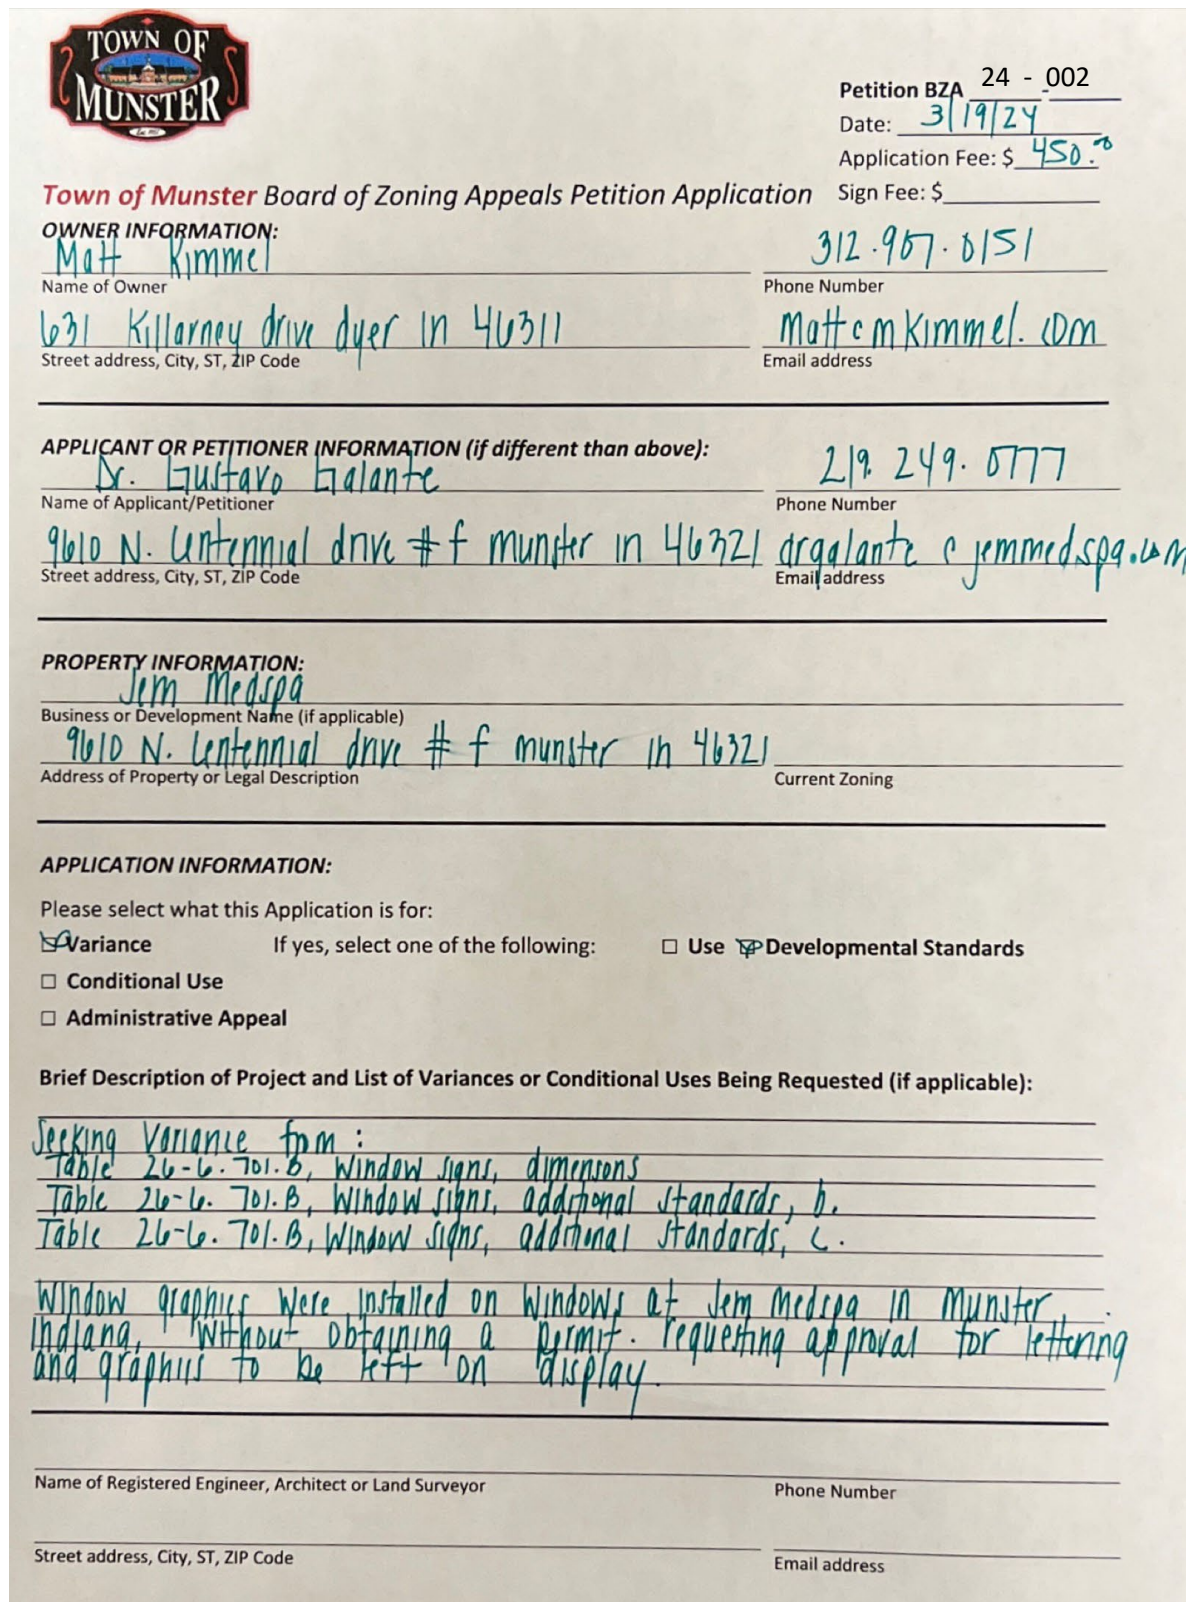 TOWN OF
MUNSTER
Petition BZA 24 - 002
Date: 3/19/24
Application Fee: $ 450.00
Sign Fee: $
Town of Munster Board of Zoning Appeals Petition Application
OWNER INFORMATION:
Matt Kimmel 312.907.0151
Name of Owner Phone Number
631 Killarney drive dyer in 46311 matt c mkimmel.com
Street address, City, ST, ZIP Code Email address
APPLICANT OR PETITIONER INFORMATION (if different than above):
Dr. Gustavo Galante 219. 249. 0777
Name of Applicant/Petitioner Phone Number
9610 N. Centennial drive # f munster in 46321 drgalante c jemmedspa.com
Street address, City, ST, ZIP Code Email address
PROPERTY INFORMATION:
Jem Medspa
Business or Development Name (if applicable)
9610 N. Centennial drive # f munster in 46321
Address of Property or Legal Description Current Zoning
APPLICATION INFORMATION:
Please select what this Application is for:
Variance If yes, select one of the following: Use Developmental Standards
Conditional Use
Administrative Appeal
Brief Description of Project and List of Variances or Conditional Uses Being Requested (if applicable):
Seeking Variance from :
Table 26-6.701.B, Window signs, dimensons
Table 26-6.701.B, Window signs, additional standards, b.
Table 26-6.701.B, Window signs, additional standards, c.
Window graphics were installed on windows at Jem Medspa in Munster,
Indiana, without obtaining a permit. requesting approval for lettering
and graphics to be left on display.
Name of Registered Engineer, Architect or Land Surveyor Phone Number
Street address, City, ST, ZIP Code Email address